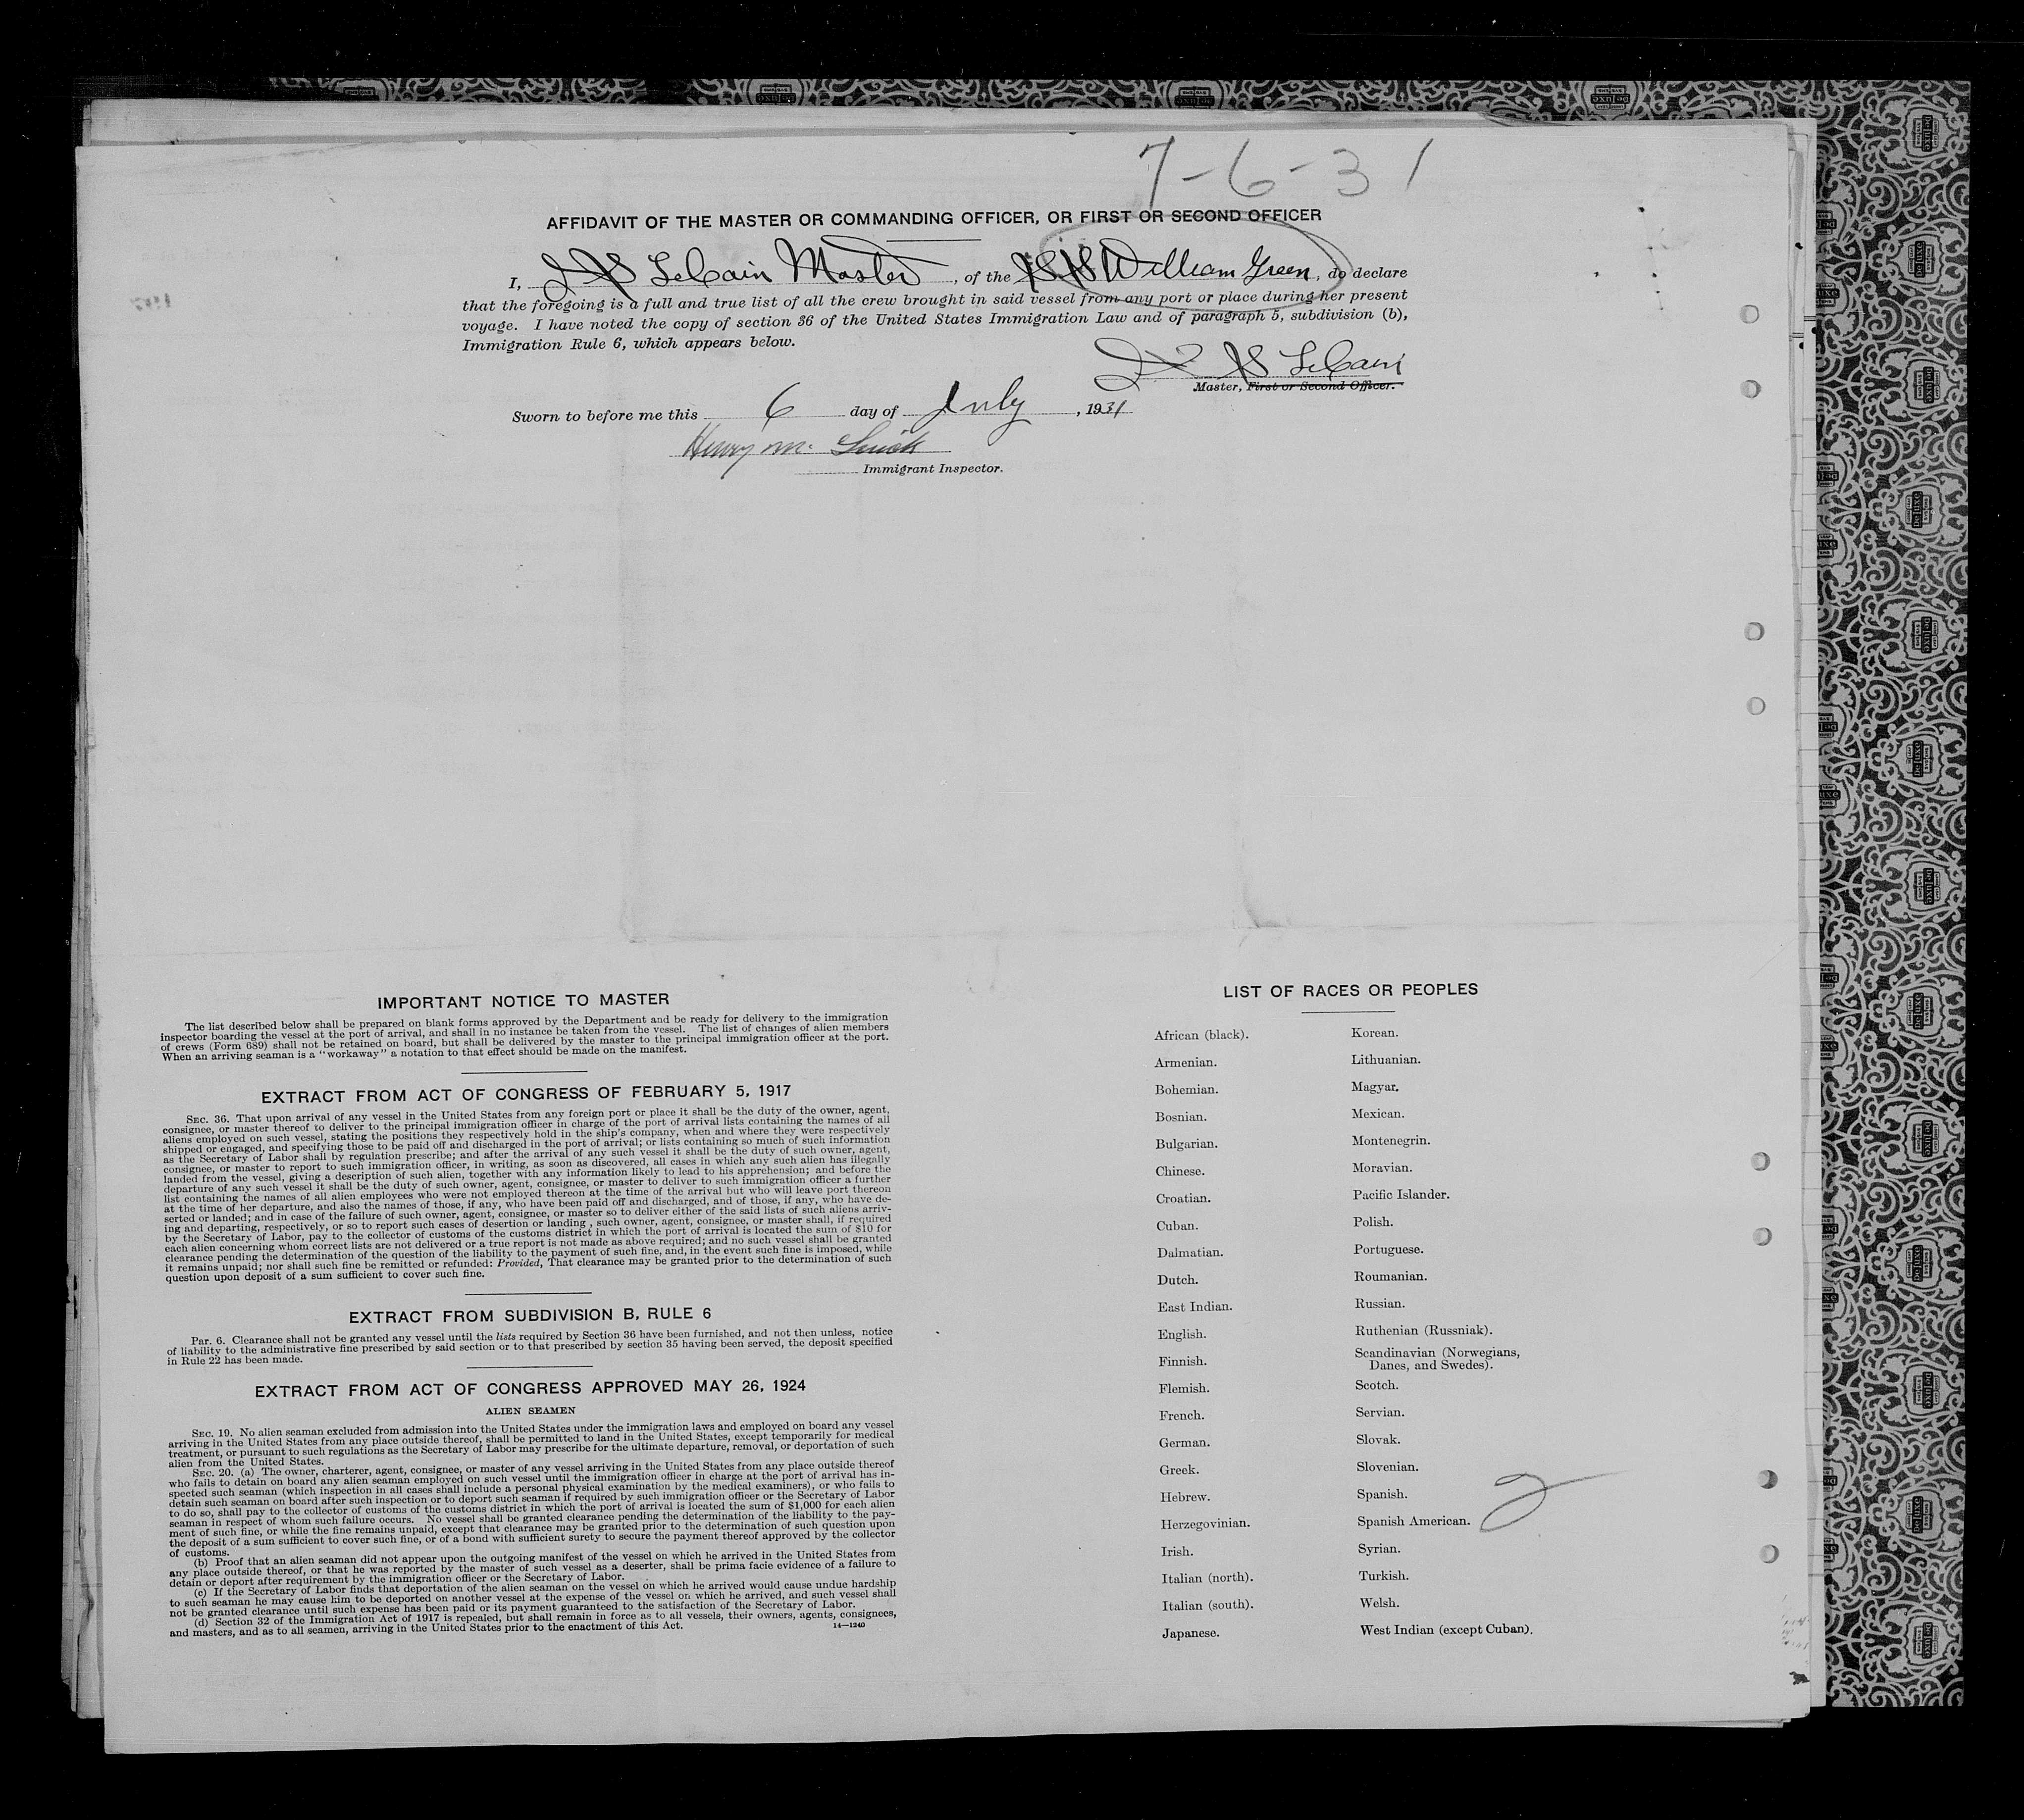 7-6-31
AFFIDAVIT OF THE MASTER OR COMMANDING OFFICER, OR FIRST OR SECOND OFFICER
I, LeCain Master, of the SS William Green, do declare
that the foregoing is a full and true list of all the crew brought in said vessel from any port or place during her present
voyage. I have noted the copy of section 36 of the United States Immigration Law and of paragraph 5, subdivision (b),
Immigration Rule 6, which appears below.
LeCain
Master, First or Second Officer.
Sworn to before me this 6 day of July, 1931
Henry M.
Immigrant Inspector.
IMPORTANT NOTICE TO MASTER
The list described below shall be prepared on blank forms approved by the Department and be ready for delivery to the immigration
inspector boarding the vessel at the port of arrival, and shall in no instance be taken from the vessel. The list of changes of alien members
of crews (Form 689) shall not be retained on board, but shall be delivered by the master to the principal immigration officer at the port.
When an arriving seaman is a "workaway" a notation to that effect should be made on the manifest.
EXTRACT FROM ACT OF CONGRESS OF FEBRUARY 5, 1917
SEC. 36. That upon arrival of any vessel in the United States from any foreign port or place it shall be the duty of the owner, agent,
consignee, or master thereof to deliver to the principal immigration officer in charge of the port of arrival lists containing the names of all
aliens employed on such vessel, stating the positions they respectively hold in the ship's company, when and where they were respectively
shipped or engaged, and specifying those to be paid off and discharged in the port of arrival; or lists containing so much of such information
as the Secretary of Labor shall by regulation prescribe; and after the arrival of any such vessel it shall be the duty of such owner, agent,
consignee, or master to report to such immigration officer, in writing, as soon as discovered, all cases in which any such alien has illegally
landed from the vessel, giving a description of such alien, together with any information likely to lead to his apprehension; and before the
departure of any such vessel it shall be the duty of such owner, agent, consignee, or master to deliver to such immigration officer a further
list containing the names of all alien employees who were not employed thereon at the time of the arrival but who will leave port thereon
at the time of her departure, and also the names of those, if any, who have been paid off and discharged, and of those, if any, who have de-
serted or landed; and in case of the failure of such owner, agent, consignee, or master so to deliver either of the said lists of such aliens arriv-
ing and departing, respectively, or so to report such cases of desertion or landing , such owner, agent, consignee, or master shall, if required
by the Secretary of Labor, pay to the collector of customs of the customs district in which the port of arrival is located the sum of $10 for
each alien concerning whom correct lists are not delivered or a true report is not made as above required; and no such vessel shall be granted
clearance pending the determination of the question of the liability to the payment of such fine, and, in the event such fine is imposed, while
it remains unpaid; nor shall such fine be remitted or refunded: Provided, That clearance may be granted prior to the determination of such
question upon deposit of a sum sufficient to cover such fine.
EXTRACT FROM SUBDIVISION B, RULE 6
Par. 6. Clearance shall not be granted any vessel until the lists required by Section 36 have been furnished, and not then unless, notice
of liability to the administrative fine prescribed by said section or to that prescribed by section 35 having been served, the deposit specified
in Rule 22 has been made.
EXTRACT FROM ACT OF CONGRESS APPROVED MAY 26, 1924
ALIEN SEAMEN
SEC. 19. No alien seaman excluded from admission into the United States under the immigration laws and employed on board any vessel
arriving in the United States from any place outside thereof, shall be permitted to land in the United States, except temporarily for medical
treatment, or pursuant to such regulations as the Secretary of Labor may prescribe for the ultimate departure, removal, or deportation of such
alien from the United States.
SEC. 20. (a) The owner, charterer, agent, consignee, or master of any vessel arriving in the United States from any place outside thereof
who fails to detain on board any alien seaman employed on such vessel until the immigration officer in charge at the port of arrival has in-
spected such seaman (which inspection in all cases shall include a personal physical examination by the medical examiners), or who fails to
detain such seaman on board after such inspection or to deport such seaman if required by such immigration officer or the Secretary of Labor
to do so, shall pay to the collector of customs of the customs district in which the port of arrival is located the sum of $1,000 for each alien
seaman in respect of whom such failure occurs. No vessel shall be granted clearance pending the determination of the liability to the pay-
ment of such fine, or while the fine remains unpaid, except that clearance may be granted prior to the determination of such question upon
the deposit of a sum sufficient to cover such fine, or of a bond with sufficient surety to secure the payment thereof approved by the collector
of customs.
(b) Proof that an alien seaman did not appear upon the outgoing manifest of the vessel on which he arrived in the United States from
any place outside thereof, or that he was reported by the master of such vessel as a deserter, shall be prima facie evidence of a failure to
detain or deport after requirement by the immigration officer or the Secretary of Labor.
(c) If the Secretary of Labor finds that deportation of the alien seaman on the vessel on which he arrived would cause undue hardship
to such seaman he may cause him to be deported on another vessel at the expense of the vessel on which he arrived, and such vessel shall
not be granted clearance until such expense has been paid or its payment guaranteed to the satisfaction of the Secretary of Labor.
(d) Section 32 of the Immigration Act of 1917 is repealed, but shall remain in force as to all vessels, their owners, agents, consignees,
and masters, and as to all seamen, arriving in the United States prior to the enactment of this Act.
14—1240
LIST OF RACES OR PEOPLES
African (black).
Armenian.
Bohemian.
Bosnian.
Bulgarian.
Chinese.
Croatian.
Cuban.
Dalmatian.
Dutch.
East Indian.
English.
Finnish.
Flemish.
French.
German.
Greek.
Hebrew.
Herzegovinian.
Irish.
Italian (north).
Italian (south).
Japanese.
Korean.
Lithuanian.
Magyar.
Mexican.
Montenegrin.
Moravian.
Pacific Islander.
Polish.
Portuguese.
Roumanian.
Russian.
Ruthenian (Russniak).
Scandinavian (Norwegians,
Danes, and Swedes).
Scotch.
Servian.
Slovak.
Slovenian.
Spanish.
Spanish American.
Syrian.
Turkish.
Welsh.
West Indian (except Cuban).
2